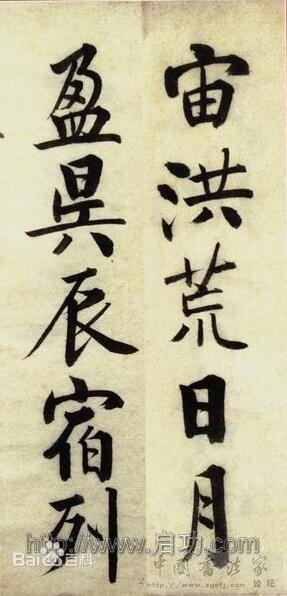 宙洪荒日月
盈昃辰宿列
http://www.启功.com
Bai百科
中国书法家
论坛
http://www.zgsfj.com